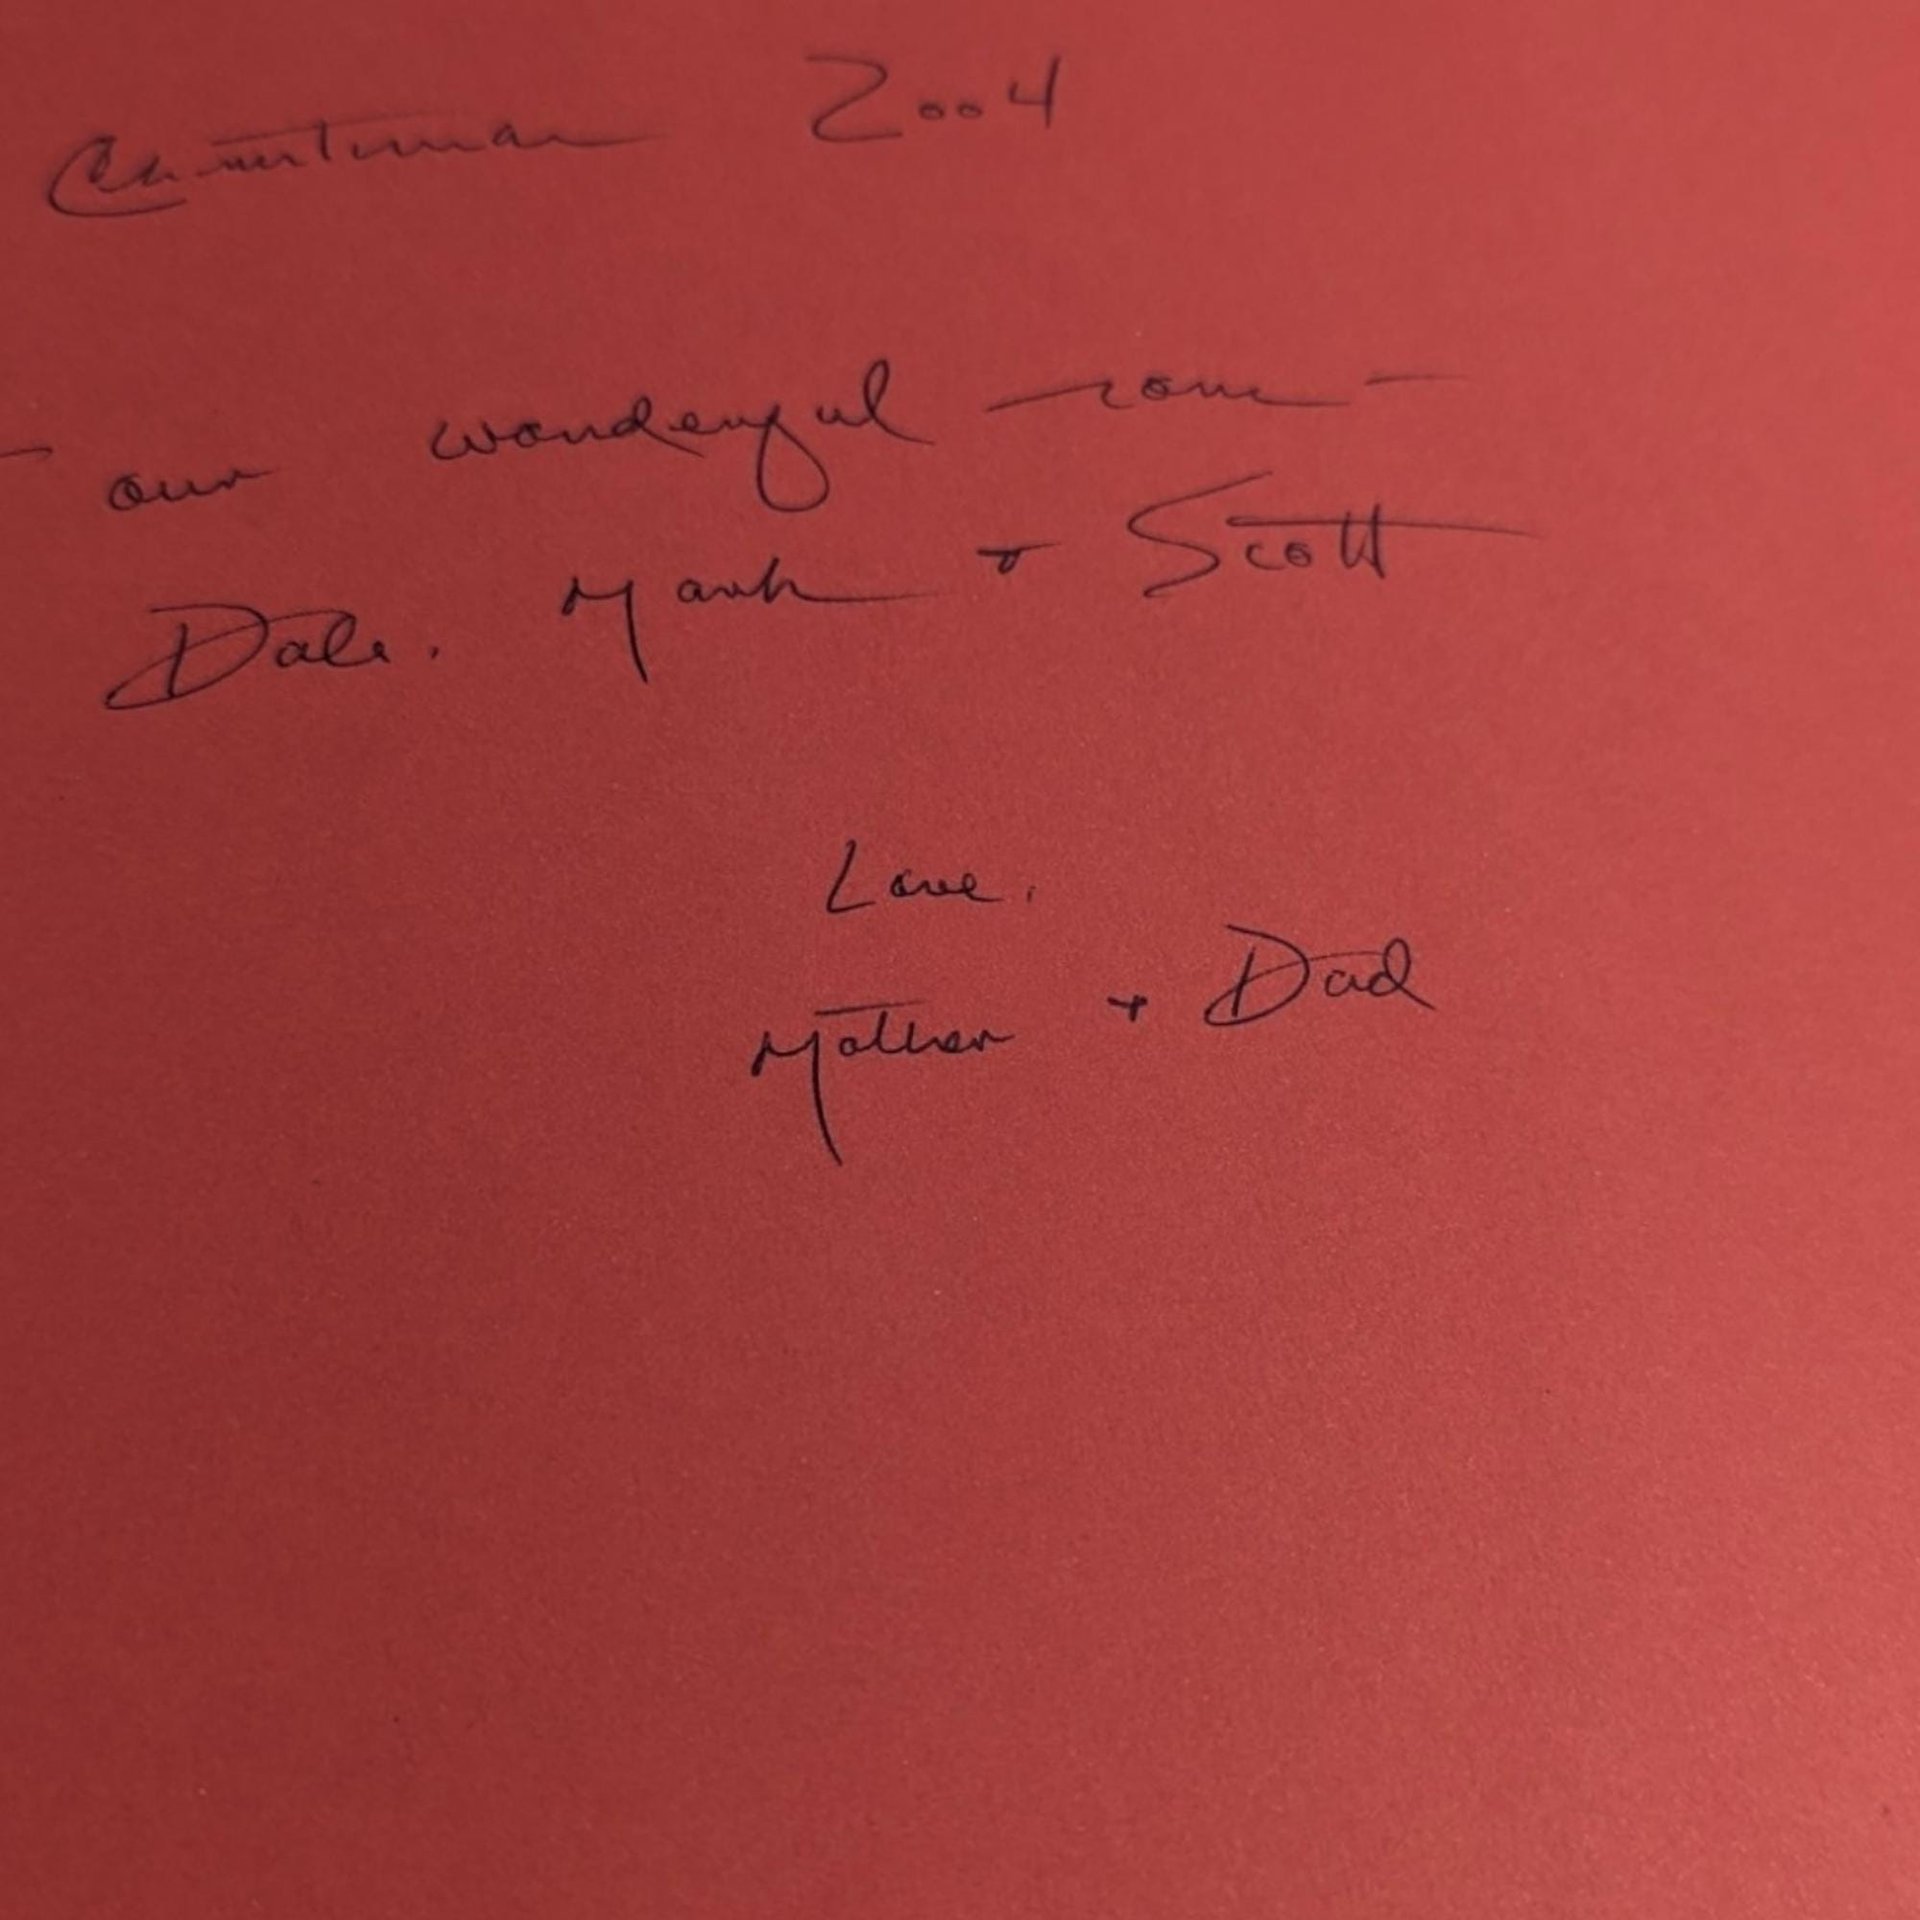 Christmas 2004
our wonderful sons -
Dale, Mark + Scott
Love,
Mother + Dad